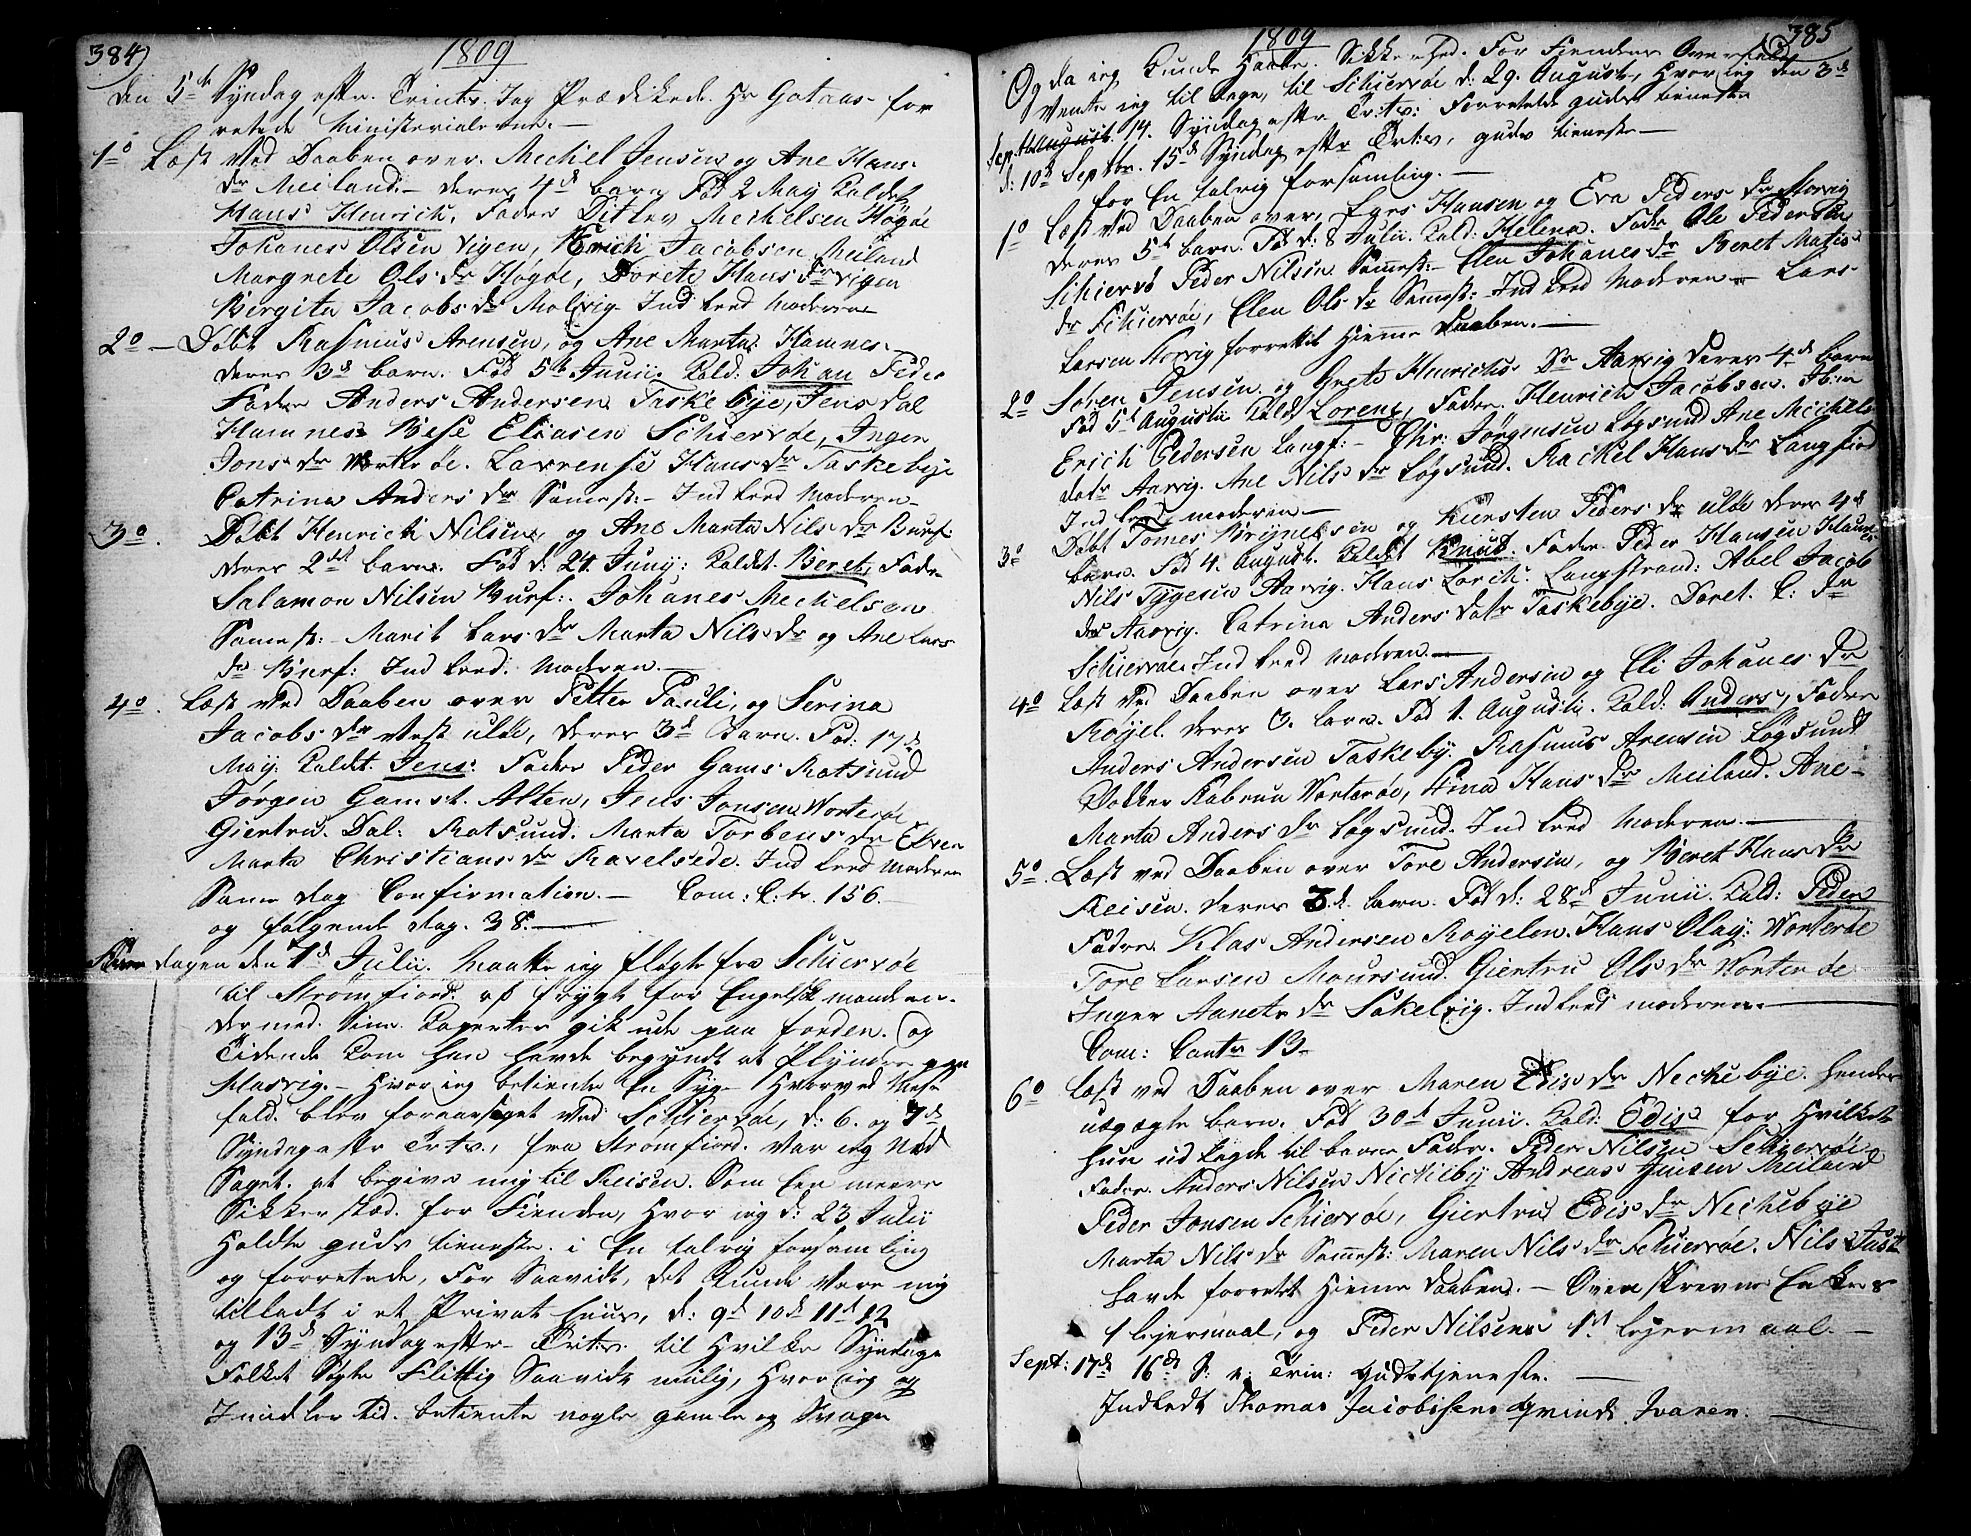 384)
1809
den 5te Syndag eftr. Trints. Jeg Prædikede. Hr Gotaas for
retede Ministerialerne.—
1o Læst Ved Daaben over. Mechel Jensen og Ane Hans
dr Meiland.— deres 4de barn Fød 2 May Kaldet
Hans Henrich. Fadr. Ditlev Mechelsen Høgøe
Johanes Olsen Vigen, Erich Jacobsen Meiland
Margrete Ols dr Høgøe, Dorete Hans dr Vigen
Bergita Jacobs dr Molvig. Ind Leed Moderen
2o — Døbt Rasmus Arensen, og Ane Marta Hamnes.
deres 3de barn. Fød 5te Junii. Kald: Johan Peder
Fadr. Anders Andersen Taskebye, Jens dal
Hamnes Bese Eliasen Schiervøe, Inger
Jons dr Worterøe. Lavrense Hans dr Taskebye
Catrina Anders dr Samest:— Ind Leed Moderen—
3o. Døbt Henrich Nilsen, og Ane Marta Nils dr Burf:
deres 2det barn. Fød d: 24. Juny: Kaldet. Beret, Fadr.
Salamon Nilsen Burf:. Johanes Mechelsen
Samest:— Marit Lars dr Marta Nils dr og Ane Lars
dr Burf: Ind Leed. Moderen.—
4o. Læst Ved Daaben over Petter Pauli, og Serina
Jacobs dr Vest ulle, deres 3de Barn. Fød: 17de
May: Kaldet. Jens: Fadr Peder Gams Rotsund
Jørgen Gamst. Alten, Jens Jonsen Worterøe
Giertru. Dal: Rotsund. Marta Torbens dr Elven
Marta Christians dr Ravelsede. Ind Leed Moderen
Same dag Confirmation.— Com: C: tr. 156.—
og følgende dag. 38.—
dagen den 7de Julii. Maatte ieg fløgte fra Schiervøe
til Strømfiord. af frygt for Engelsk manden.
der med. Sine. Caperter gik ude paa forden. og
Tidende kom han havde begyndt at Plyndre paa
Masvig.— Hvor ieg betiente En Syge Hvorved Mese
fald. blev foraarsaget Ved Schiervøe, d: 6. og 7de
Syndag eftr Trts., fra Strømfiord. Var ieg Nød
Saget. at begive mig til Reisen. Som Een meere
Sikker stæd. for Fienden, Hvor ieg d: 23 Julii
Holdte guds tieneste. i En talrig forsamling
og forretede, For Saavidt, det Kunde Være mig
tilladt i et Privat Huus, d: 9de 10de 11de 12
og 13de Syndag eftr— Trts. til Hvilke Syndage
Folket Søgte Flittig Saavidt mulig, Hvor ieg og
Imidler tid. betiente nogle gamle og Svage
385
1809
Og da ieg Kunde Haabe. Sikkerhed. For Fiendens Overfald
Vente ieg til bage, til Schiervøe d: 29. August, Hvor ieg den 3de
Sept. 14. Syndag eftr Trts: Forretede guds tieneste
d: 10de Septbr. 15de Syndag eftr Trts, guds tieneste—
for En talrig forsamling.—
1o Læst ved Daaben over, Lars Hansen og Eva Peders dr Morvig
deres 5te barn. Fød d: 8 Julii. Kald: Helena. Fadr. Ole Pedersen
Schiervø Peder Nilsen Samest:— Elen Johanes dr Beret Matis
dr Schiervøe, Elen Ols dr Samest:— Ind Leed Moderen— Lars
Larsen Morvig forrettet Hieme Daaben.—
2o Søren Jensen og Grete Henrichs Dr Aarvig deres 4de barn
Fød 5te Augusti Kald: Lorens, Fadr. Henrich Jacobsen. Ibm
Erich Pedersen Langf:— Chr: Jørgensen Løgsund Ane Michels
datr Aarvig. Ane Nils dr Løgsund. Rachel Hans dr Langfiord
Ind Leed moderen—
3o Døbt Tomes Brynelsen og Kirsten Peders dr ulle deres 4de
barn. Fød 4. August. Kaldt Knud. Fadr. Peder Hansen Haucnes
Nils Tygesen Aarvig. Hans Lorch. Langstrand: Abel Jacob
dr Aarvig. Catrina Anders datr Taskebye. Doret. C: dr
Schiervøe. Ind Leed Moderen—
4o Læst Ved Daaben over Lars Andersen og Eli Johanes dr
Røyel. deres 3. barn. Fød 1. Augusti. Kald: Anders, Fadr
Anders Andersen Taskeby. Rasmus Arensen Løgsund
Vokker Kabrun Worterøe, Hma Hans dr Meiland. Ane
Marta Anders dr Løgsund. Ind Leed Moderen.—
5o. Læst ved Daaben over Tore Andersen, og Beret Hans dr
Reisen. deres 3.d. barn. Fød d: 28de Junii. Kald: Peder
Fadr. Klas Andersen Røyelen. Hans Olay: Worterøe
Tore Larsen Maursund. Giertru Ols dr Worterøe
Inger Aanets dr Søkelvig. Ind Leed moderen.—
Com: Cantr 13—
6o Læst ved Daaben over Maren Edis dr Nechebye. Hendes
uægte barn. Fød 30te Junii. Kald: Edis for Hvilket
Hun ud lagde til barne Fadr. Peder Nilsen Schiervøe
Fadr. Anders Nilsen Nicheby Andreas Jensen Meiland
Peder Jonsen Schiervøe, Giertru Edis dr Nichebye
Marta Nils dr Samest: Maren Nils dr Schiervøe. Nils Just
havde forretet Hieme Daaben.— Oven skrevne Enkes
1 lejermaal, og Peder Nilsens 1st lejermaal.—
Sept: 17de 16de S: e: Trin: Gudstjeneste.—
Indledt Thomas Jacobsens Qvinde Ivaren.—